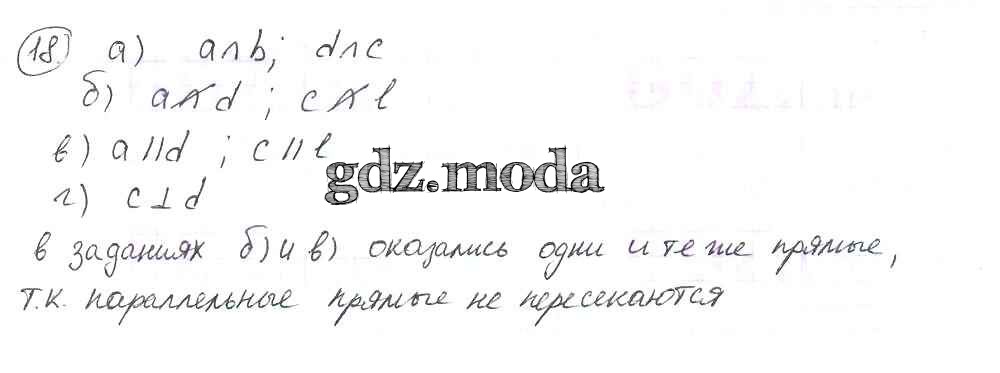 18. а) a∩b; d∩c
б) a∩̸d ; c∩̸l
в) a||d ; c||l
gdz.moda
г) c⊥d
в заданиях б) и в) оказались одни и те же прямые,
т.к. параллельные прямые не пересекаются